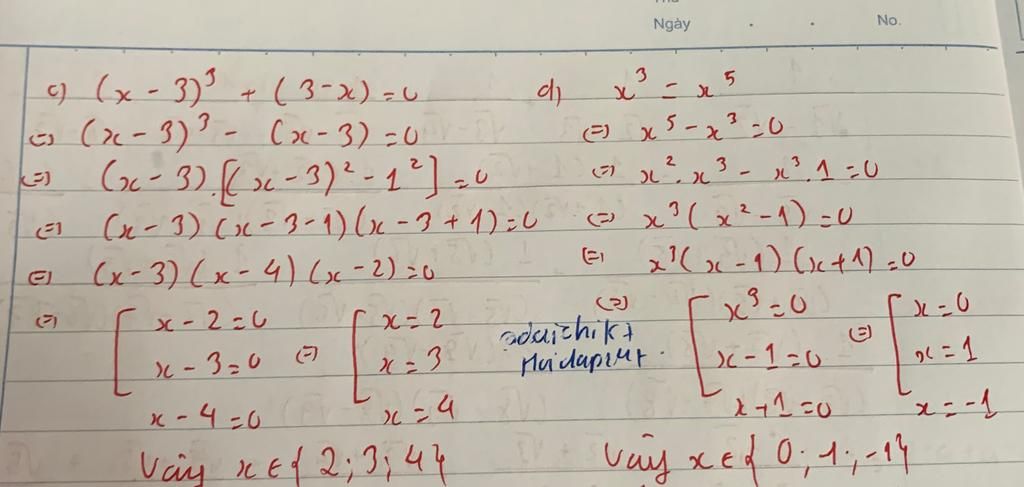 Ngày . . No.
c) (x - 3)³ + (3 - x) = 0
(=) (x - 3)³ - (x - 3) = 0
(=) (x - 3).[(x - 3)² - 1²] = 0
(=) (x - 3)(x - 3 - 1)(x - 3 + 1) = 0
(=) (x - 3)(x - 4)(x - 2) = 0
(=) [ x - 2 = 0 (=) [ x = 2
x - 3 = 0 x = 3
x - 4 = 0 x = 4
Vậy x ∈ { 2; 3; 4 }
d) x³ = x⁵
(=) x⁵ - x³ = 0
(=) x². x³ - x³. 1 = 0
(=) x³( x² - 1) = 0
(=) x³( x - 1)(x + 1) = 0
(=) [ x³ = 0 (=) [ x = 0
x - 1 = 0 x = 1
x + 1 = 0 x = -1
Vậy x ∈ { 0; 1; -1 }